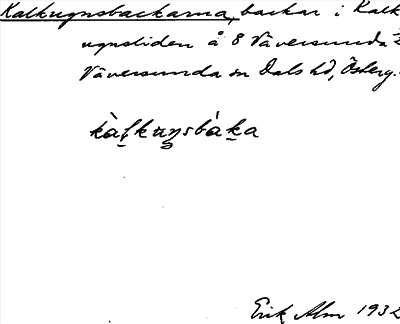 Kalkugnsbackarna, backar i Kalk
ugnsliden å 8 Väversunda
Väversunda sn Dals hd, Österg.
kàlkuŋsbàka
Erik Alm 1932